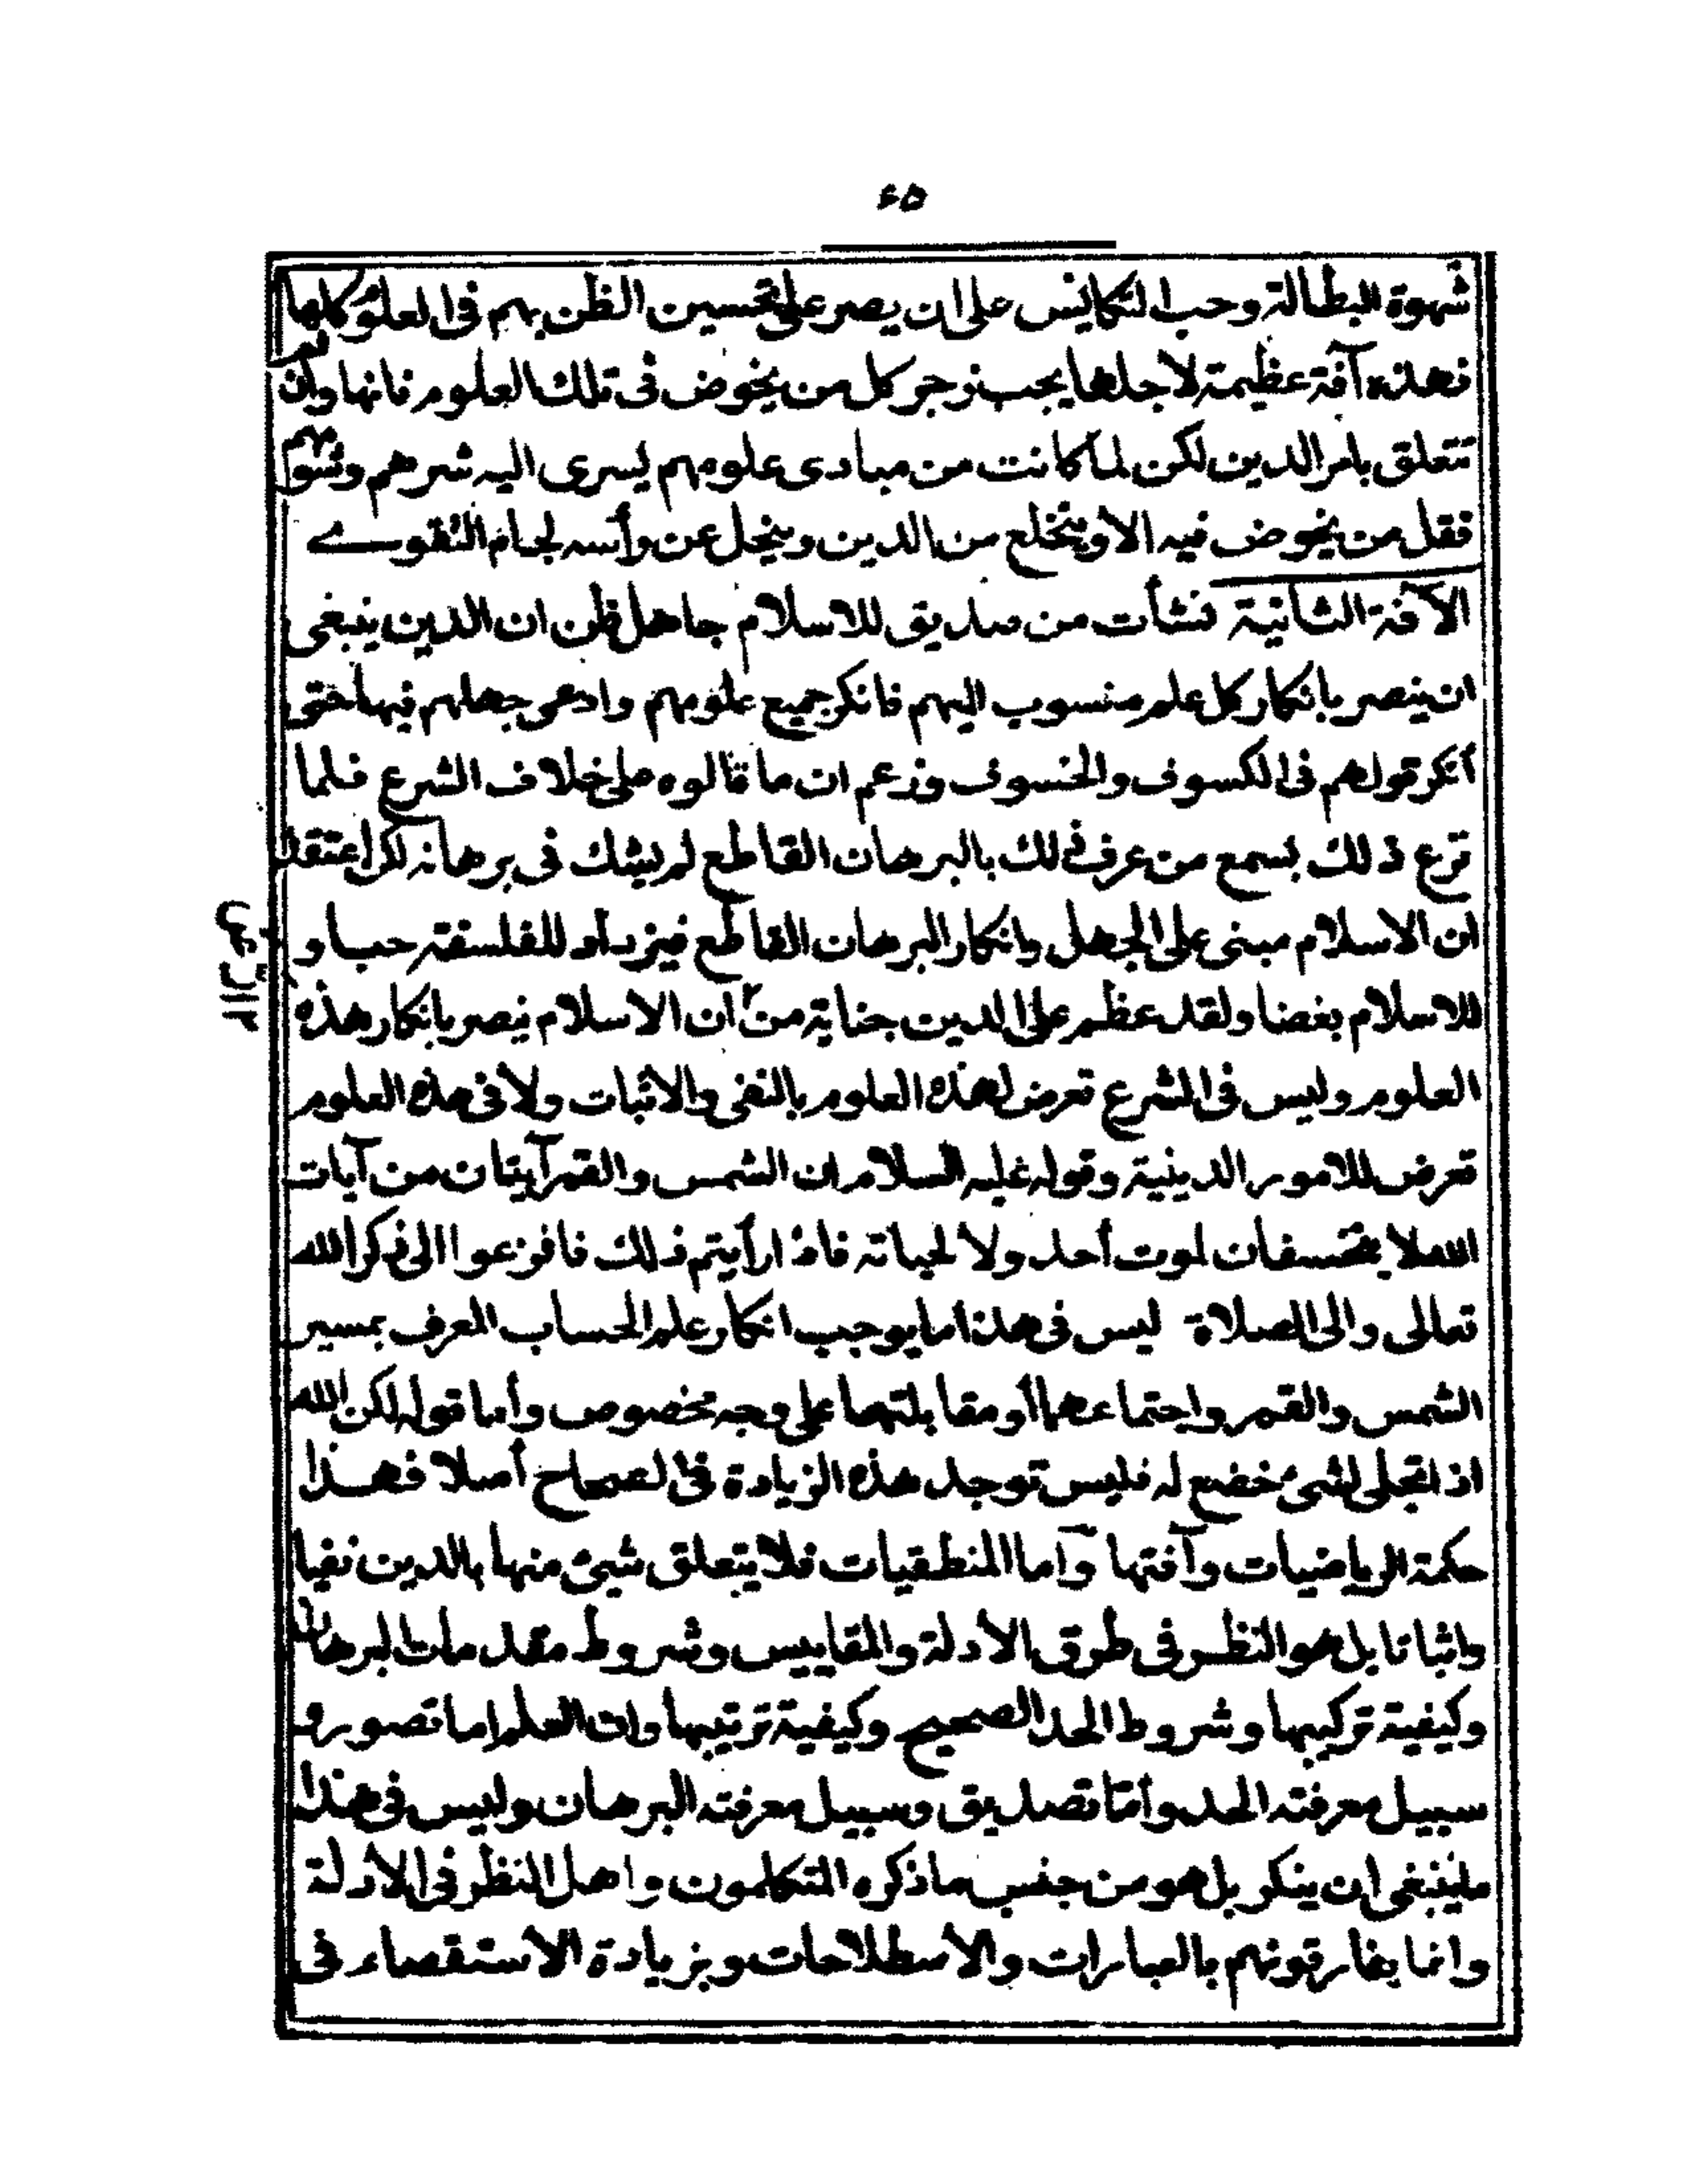 ٤٥
شهوة البطالة وحب التكايس على ان يصر على تحسين الظن بهم فى العلوم كلها
فهذه آفة عظيمة لاجلها يجب زجر كل من يخوض فى تلك العلوم فانها وان لم
تتعلق بامر الدين لكن لما كانت من مبادى علومهم يسرى اليه شرهم وشومهم
فقل من يخوض فيه الا وينخلع من الدين وينحل عن رأسه لجام التقوى
الآفة الثانية نشأت من صديق للاسلام جاهل ظن ان الدين ينبغى
ان ينصر بانكار كل علم منسوب اليهم فانكر جميع علومهم وادعى جهلهم فيها حتى
أنكر قولهم فى الكسوف والخسوف وزعم ان ما قالوه على خلاف الشرع فلما
قرع ذلك بسمع من عرف ذلك بالبرهان القاطع لم يشك فى برهانه لكن اعتقد
ان الاسلام مبنى على الجهل وانكار البرهان القاطع فيزداد للفلسفة حبا و
للاسلام بغضا ولقد عظم على الدين جناية من٢ ان الاسلام ينصر بانكار هذه
العلوم وليس فى الشرع تعرض لهذه العلوم بالنفى والاثبات ولا فى هذه العلوم
تعرض للامور الدينية وقوله عليه السلام ان الشمس والقمر آيتان من آيات
الله لا يخسفان لموت أحد ولا لحياته فاذا رأيتم ذلك فافزعوا الى ذكر الله
تعالى والى الصلاة ليس فى هذا ما يوجب انكار علم الحساب المعرف بمسير
الشمس والقمر واجتماعهما أو مقابلتهما على وجه مخصوص وأما قوله لكن الله
اذا تجلى لشئ خضع له فليس توجد هذه الزيادة فى الصحاح أصلا فهذا
حكمة الرياضيات وآفتها وأما المنطقيات فلا يتعلق شئ منها بالدين نفيا
واثباتا بل هو النظر فى طرق الأدلة والمقاييس وشروط مقدمات البرهان
وكيفية تركيبها وشروط الحد الصحيح وكيفية ترتيبها وان العلم اما تصور و
سبيل معرفته الحد وأما تصديق وسبيل معرفته البرهان وليس فى هذا
ما ينبغى ان ينكر بل هو من جنس ما ذكره المتكلمون واهل النظر فى الأدلة
وانما يفارقونهم بالعبارات والأسطلاحات وبزيادة الأستقصاء فى